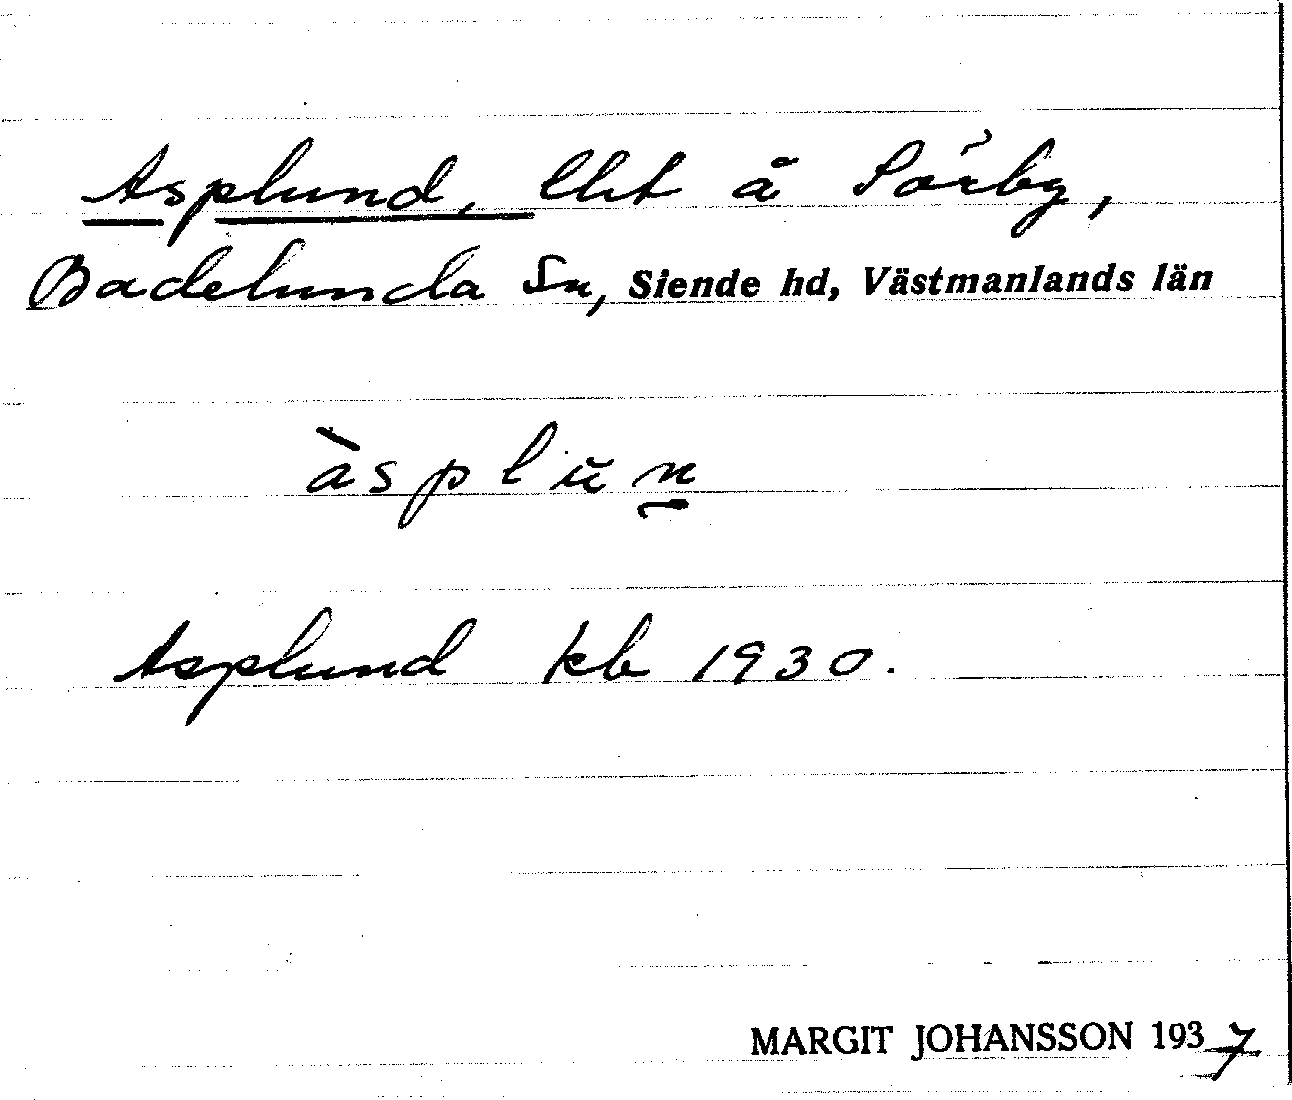 Asplund, lht å Sörby,
Badelunda Sn, Siende hd, Västmanlands län
àsplŭn̲
Asplund kb 1930.
MARGIT JOHANSSON 1937